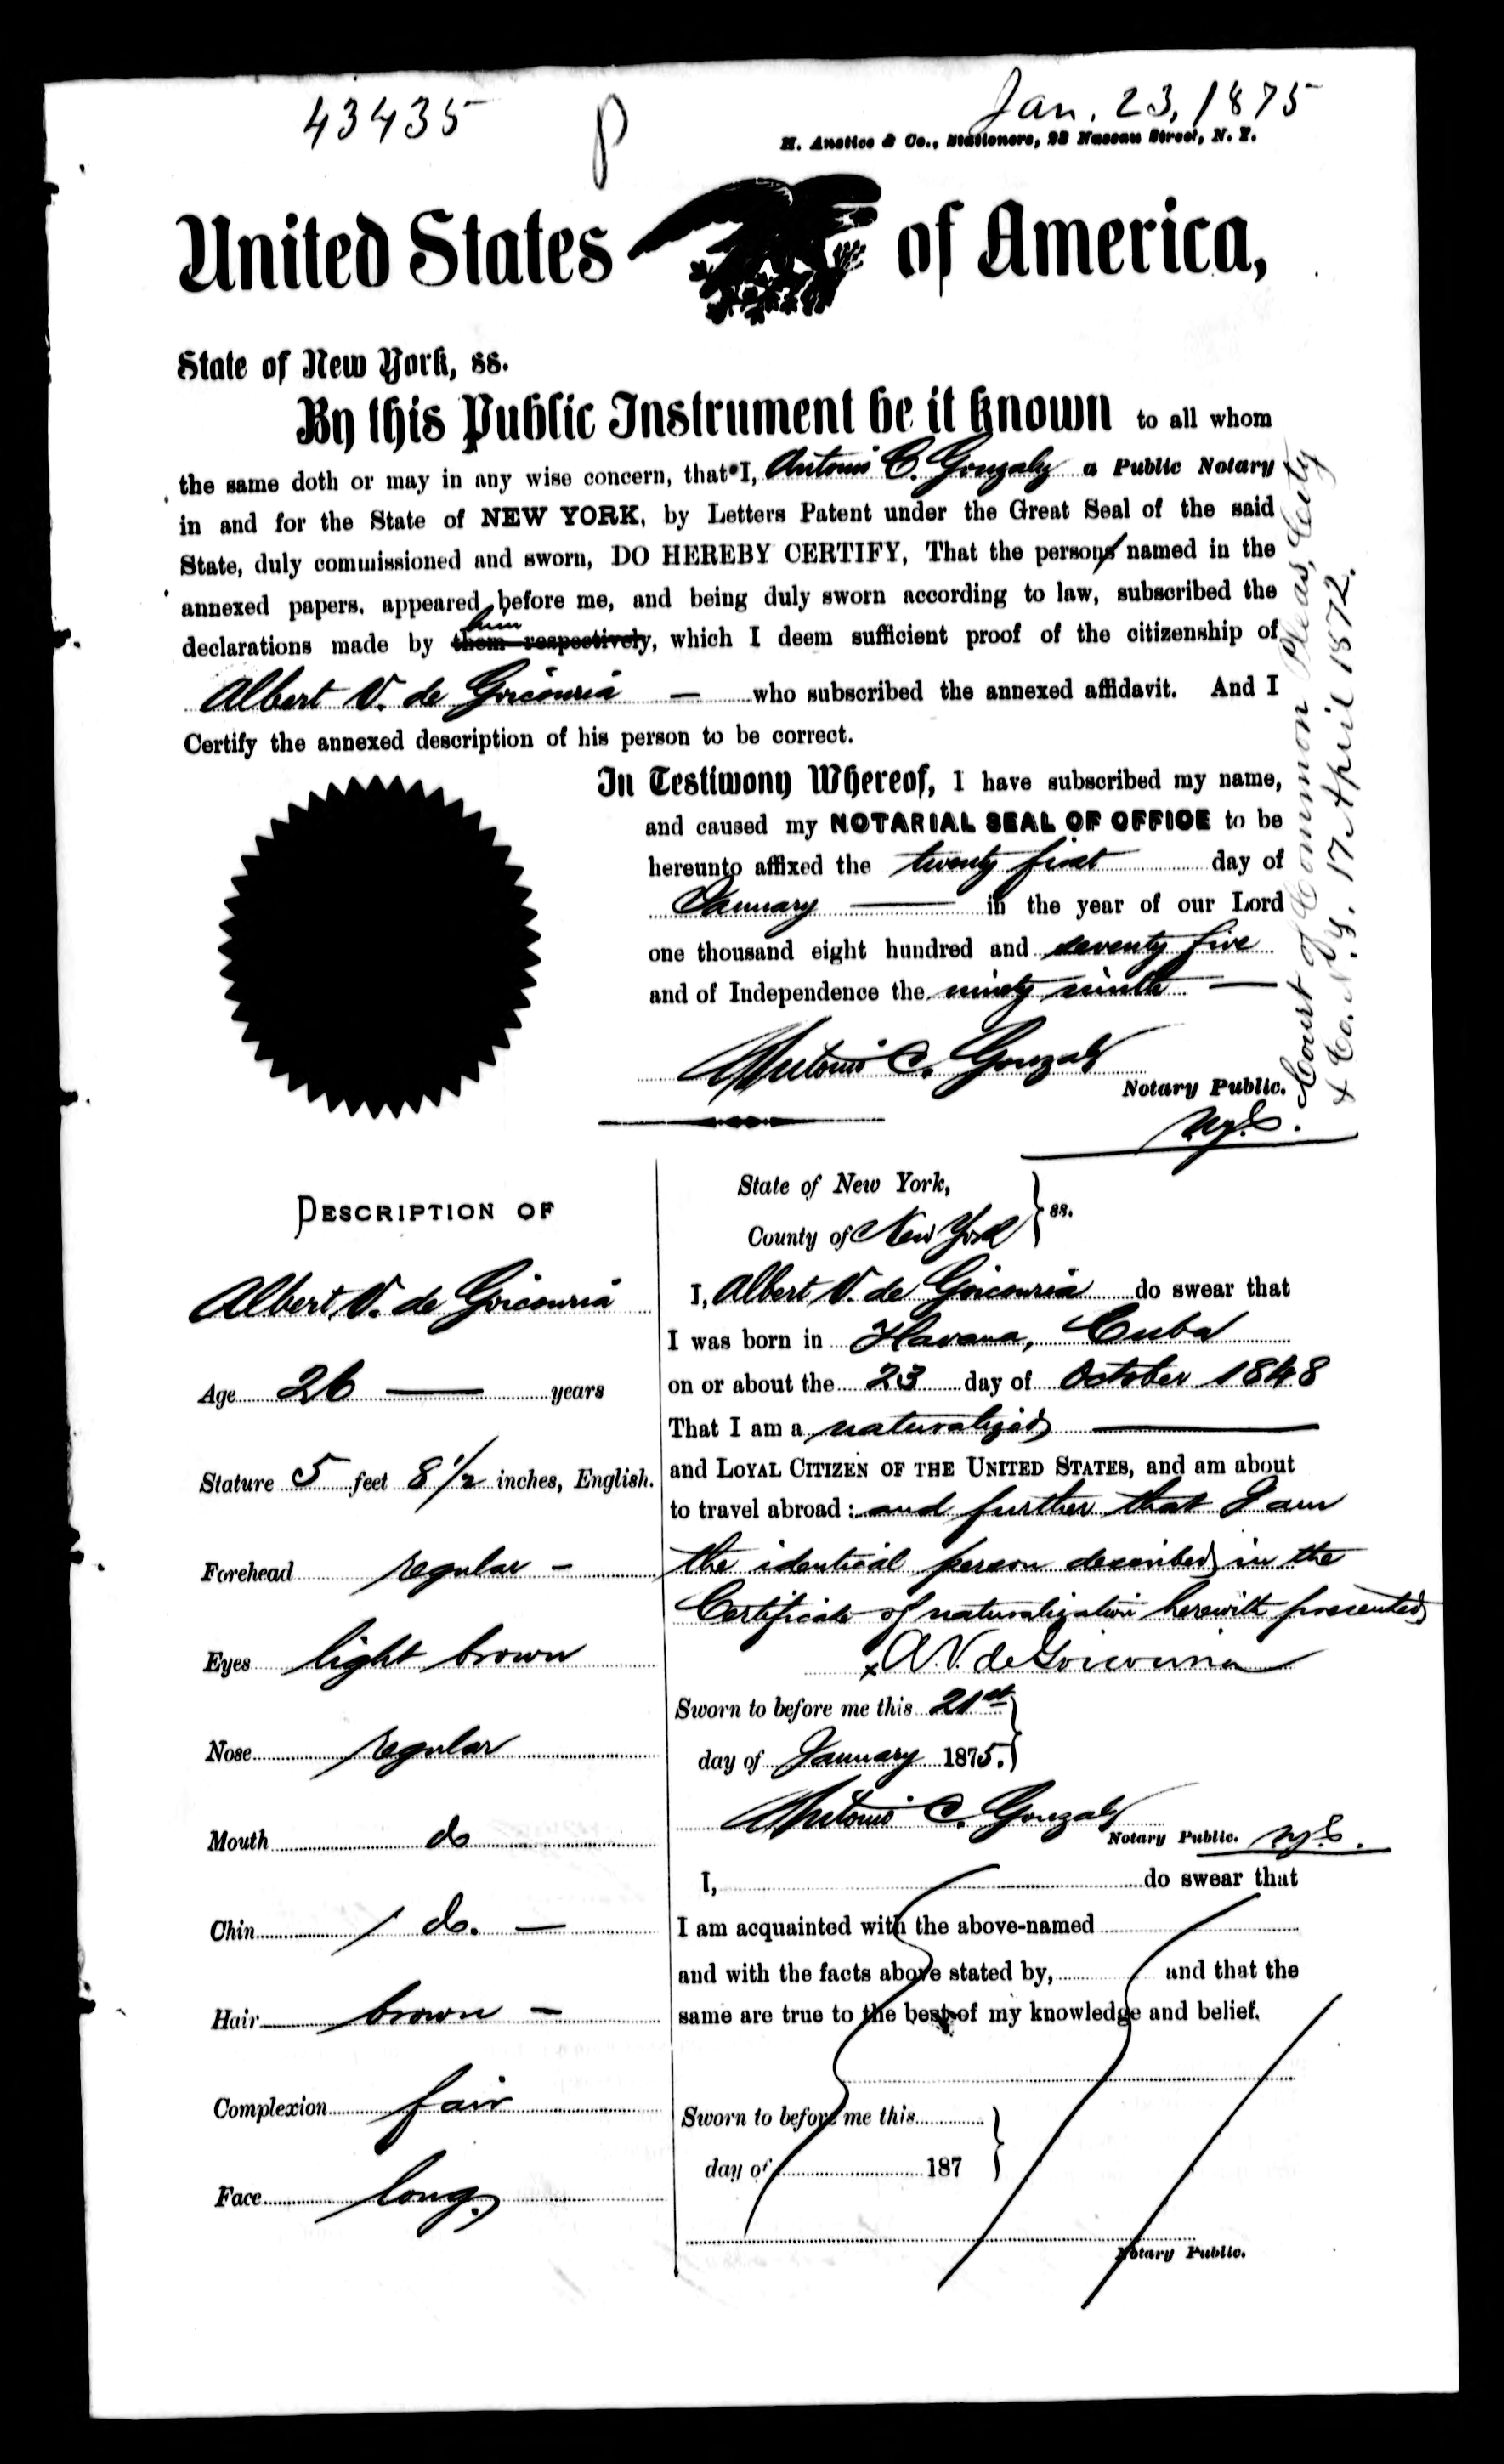 43435
P
Jan. 23, 1875
H. Anstice & Co., Stationers, 23 Nassau Street, N. Y.
United States of America,
State of New York, ss.
By this Public Instrument be it known to all whom
the same doth or may in any wise concern, that I, Antonio C. Gonzalez a Public Notary
in and for the State of NEW YORK, by Letters Patent under the Great Seal of the said
State, duly commissioned and sworn, DO HEREBY CERTIFY, That the persons named in the
annexed papers, appeared before me, and being duly sworn according to law, subscribed the
him
declarations made by them respectively, which I deem sufficient proof of the citizenship of
Albert V. de Goicouria — who subscribed the annexed affidavit. And I
Certify the annexed description of his person to be correct.
In Testimony Whereof, I have subscribed my name,
and caused my NOTARIAL SEAL OF OFFICE to be
hereunto affixed the twenty first day of
January — in the year of our Lord
one thousand eight hundred and seventy five
and of Independence the ninety ninth —
Antonio C. Gonzalez
Notary Public.
N.Y.C.
Court of Common Pleas, City
& Co. N.Y. 17 April 1872.
DESCRIPTION OF
Albert V. de Goicouria
Age 26 — years
Stature 5 feet 8 1/2 inches, English.
Forehead regular -
Eyes light brown
Nose regular
Mouth do
Chin do. —
Hair brown -
Complexion fair
Face long.
State of New York,
County of New York } ss.
I, Albert V. de Goicouria do swear that
I was born in Havana, Cuba
on or about the 23 day of October 1848
That I am a naturalized —
and LOYAL CITIZEN OF THE UNITED STATES, and am about
to travel abroad: and further that I am
the identical person described in the
Certificate of naturalization herewith presented
x A V. de Goicouria
Sworn to before me this 21st
day of January 1875. }
Antonio C. Gonzalez
Notary Public. N.Y.C.
I, do swear that
I am acquainted with the above-named
and with the facts above stated by, and that the
same are true to the best of my knowledge and belief.
Sworn to before me this
day of 187 }
Notary Public.